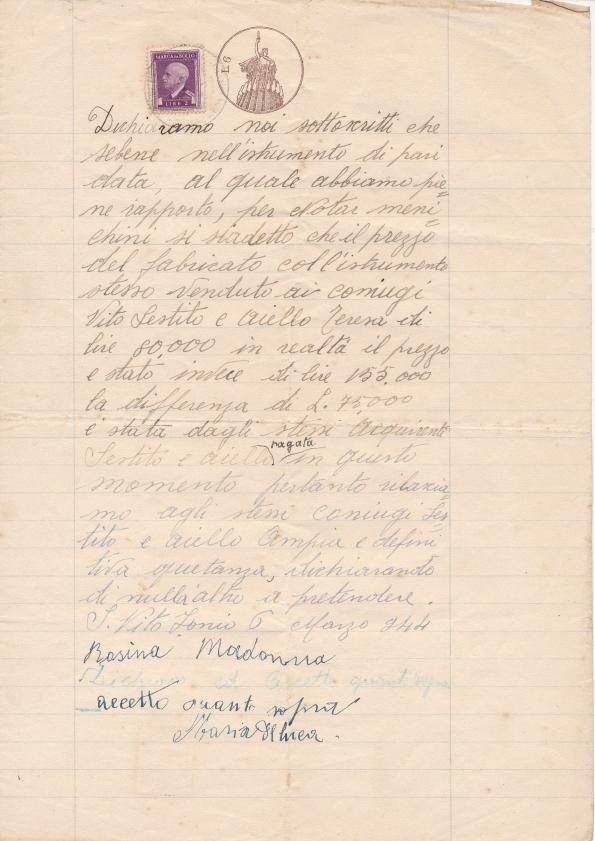 MARCA DA BOLLO
LIRE 2
L 6
Dichiaramo noi sottoscritti che
sebene nell'istrumento di pari
data, al quale abbiamo pie=
ne rapporto, per Notar meni=
chini si siadetto che il prezzo
del fabricato coll'istrumento
stesso venduto ai coniugi
Vito Sestito e Aiello Teresa di
lire 80,000 in realtà il prezzo
e stato invece di lire 155.000
la differenza di L. 75000
e' stata dagli stessi Acquirenti
Sestito e Aiello pagata in questo
momento pertanto rilascia=
mo agli stessi coniugi Ses
tito e Aiello Ampia e defini
tiva quietanza, dichiarando
di null'altro a pretendere.
S. Vito Jonio 6 Marzo 944
Rosina Madonna
ed accetto quanto sopra
accetto quanto sopra
Maria